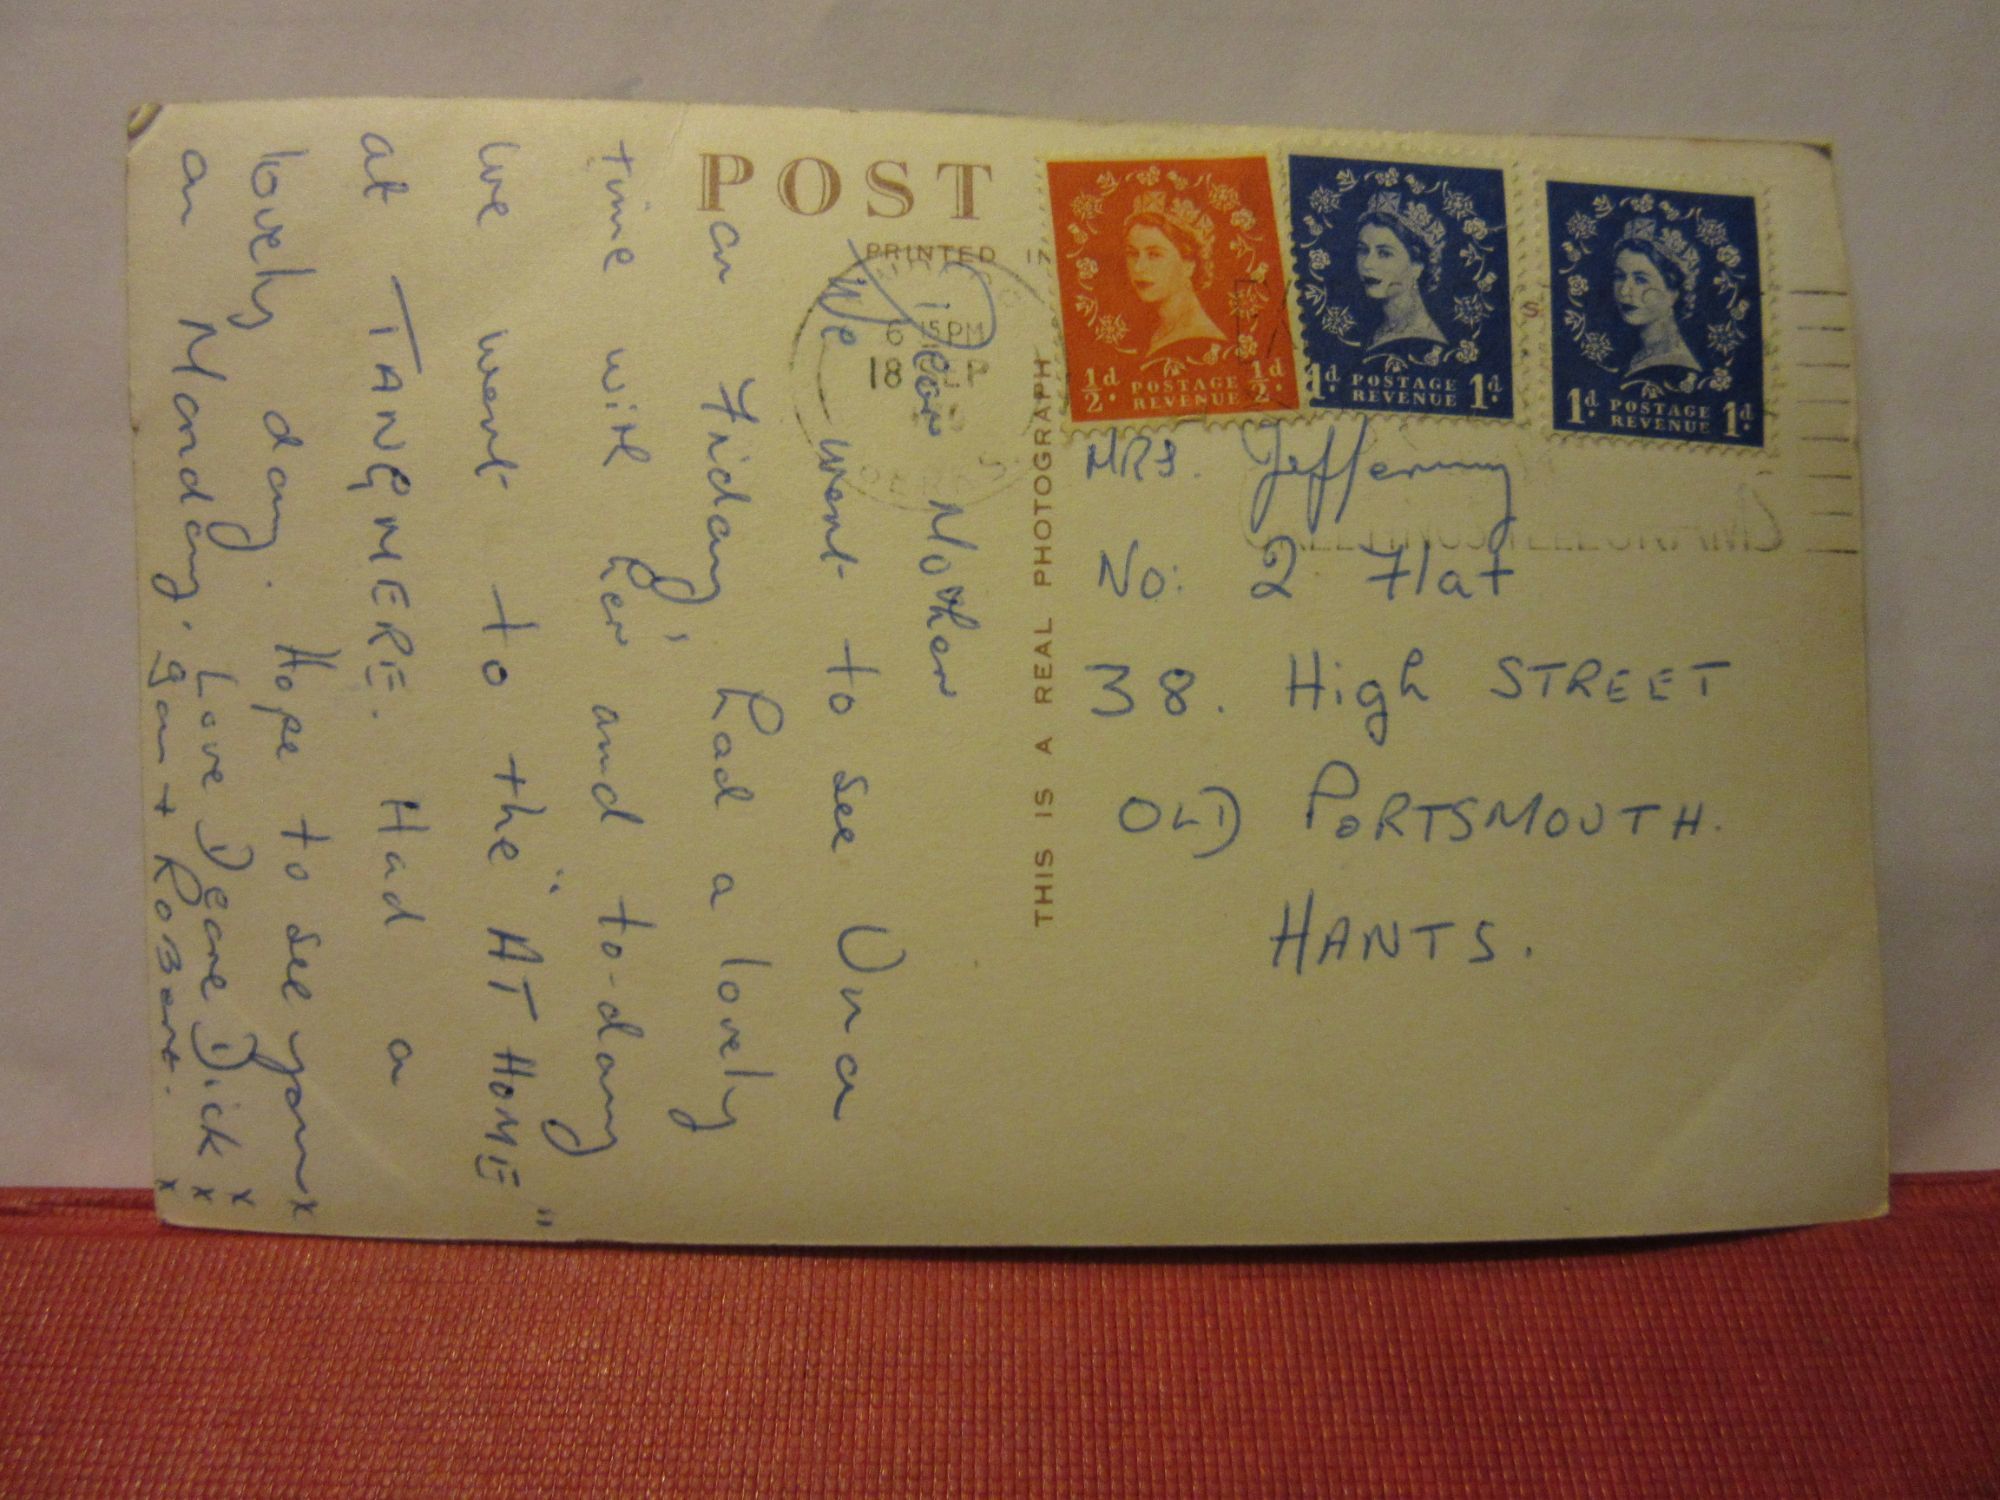 POST
PRINTED
THIS IS A REAL PHOTOGRAPH
1/2d. POSTAGE REVENUE 1/2d.
1d. POSTAGE REVENUE 1d.
1d. POSTAGE REVENUE 1d.
18
Dear Mother
We went to see Una
on Friday, had a lovely
time with her and to-day
we went to the "AT HOME"
at TANGMERE. Had a
lovely day. Hope to see you x
on Monday. Love Deare Dick x x
+ ROBert. x
MRS. Jefferny
No: 2 Flat
38. High STREET
OLD PORTSMOUTH.
HANTS.